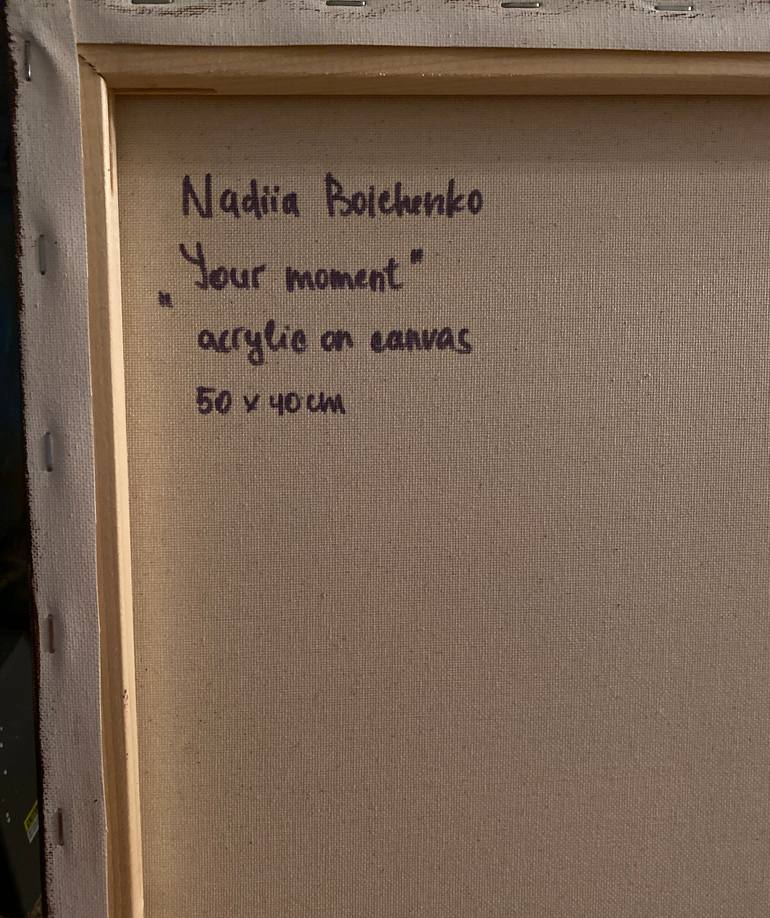 Nadiia Boichenko
„Your moment"
acrylic on canvas
50 x 40 cm